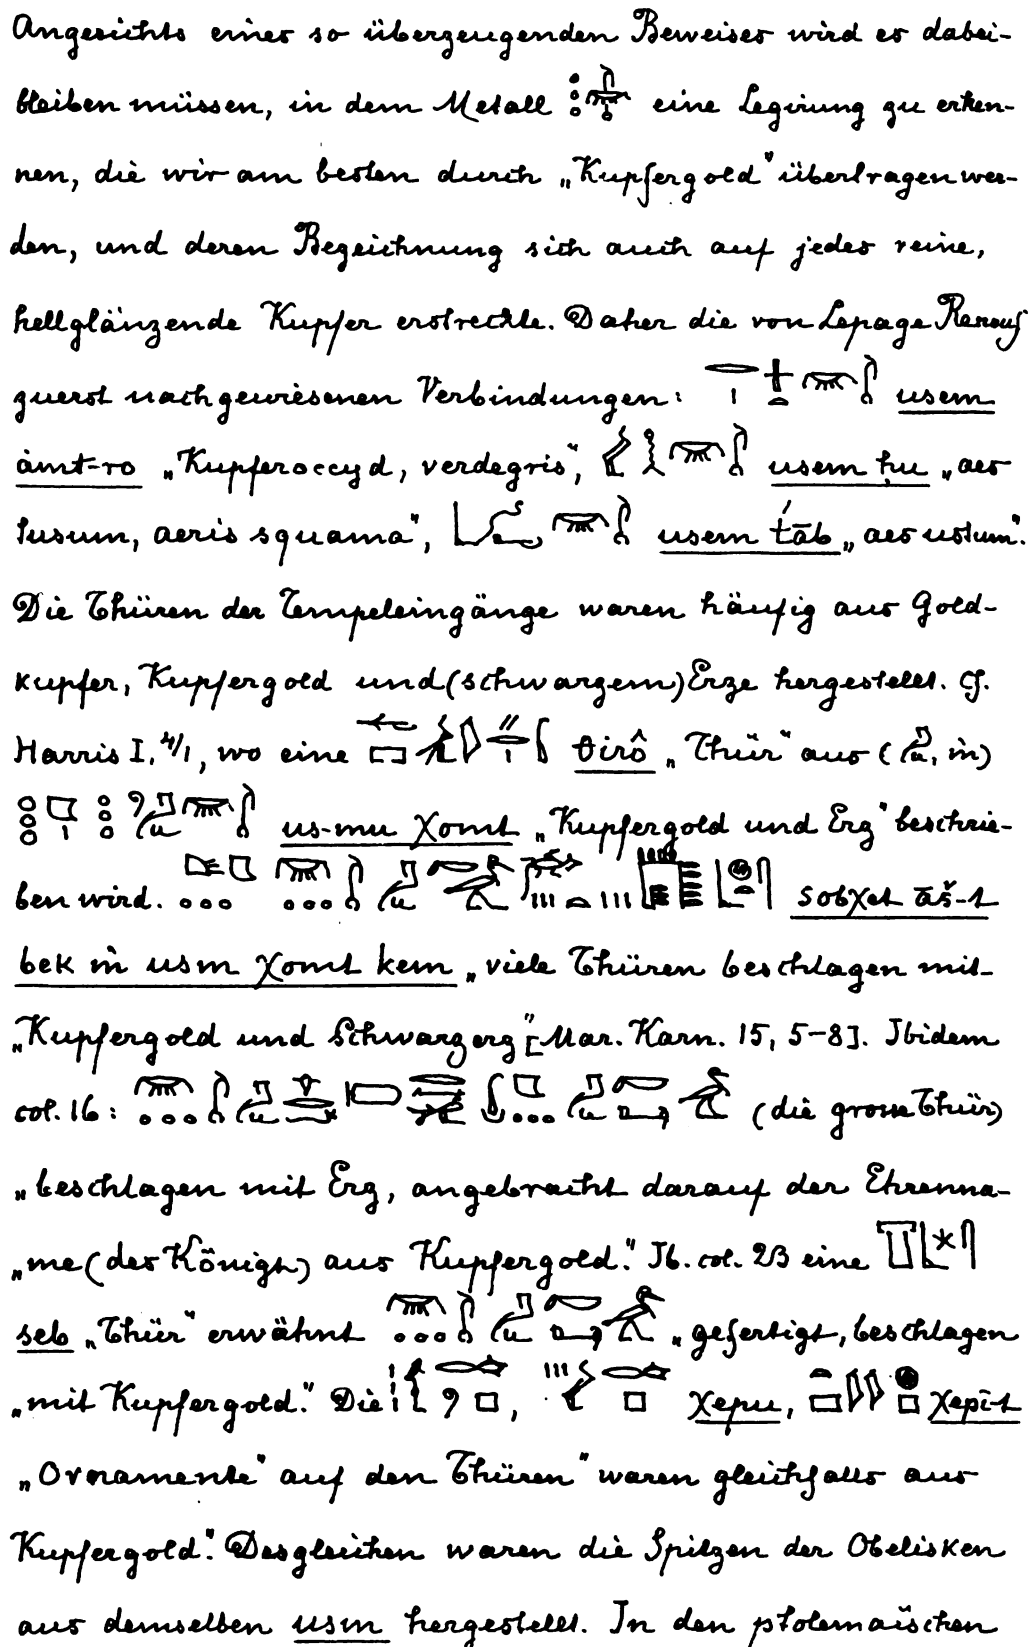 Angesichts eines so überzeugenden Beweises wird es dabei-
bleiben müssen, in dem Metall eine Legirung zu erken-
nen, die wir am besten durch „Kupfergold" übertragen wer-
den, und deren Bezeichnung sich auch auf jedes reine,
hellglänzende Kupfer erstreckte. Daher die von Lepage Renouf
zuerst nachgewiesenen Verbindungen: usem
ȧmt-ro „Kupferoccyd, verdegris", usem ḥu „aes
fusum, aeris squama", usem t́āb „aes ustum".
Die Thüren der Tempeleingänge waren häufig aus Gold-
kupfer, Kupfergold und (schwarzem) Erze hergestellt. Cf.
Harris I, 4/1, wo eine θirô „Thür" aus ( , ṁ)
us-mu χomt „Kupfergold und Erz" beschrie-
ben wird. sobχet āš-t
bek ṁ usm χomt kem „viele Thüren beschlagen mit
„Kupfergold und Schwarzerz" [Mar. Karn. 15, 5-8]. Ibidem
col. 16: (die grosse Thür)
„beschlagen mit Erz, angebracht darauf der Ehrenna-
„me (des Königs) aus Kupfergold." Ib. col. 23 eine
seb „Thür" erwähnt „gefertigt, beschlagen
„mit Kupfergold." Die , χepu, χepi-t
„Ornamente" auf den Thüren" waren gleichfalls aus
Kupfergold". Desgleichen waren die Spitzen der Obelisken
aus demselben usm hergestellt. In den ptolemaïschen